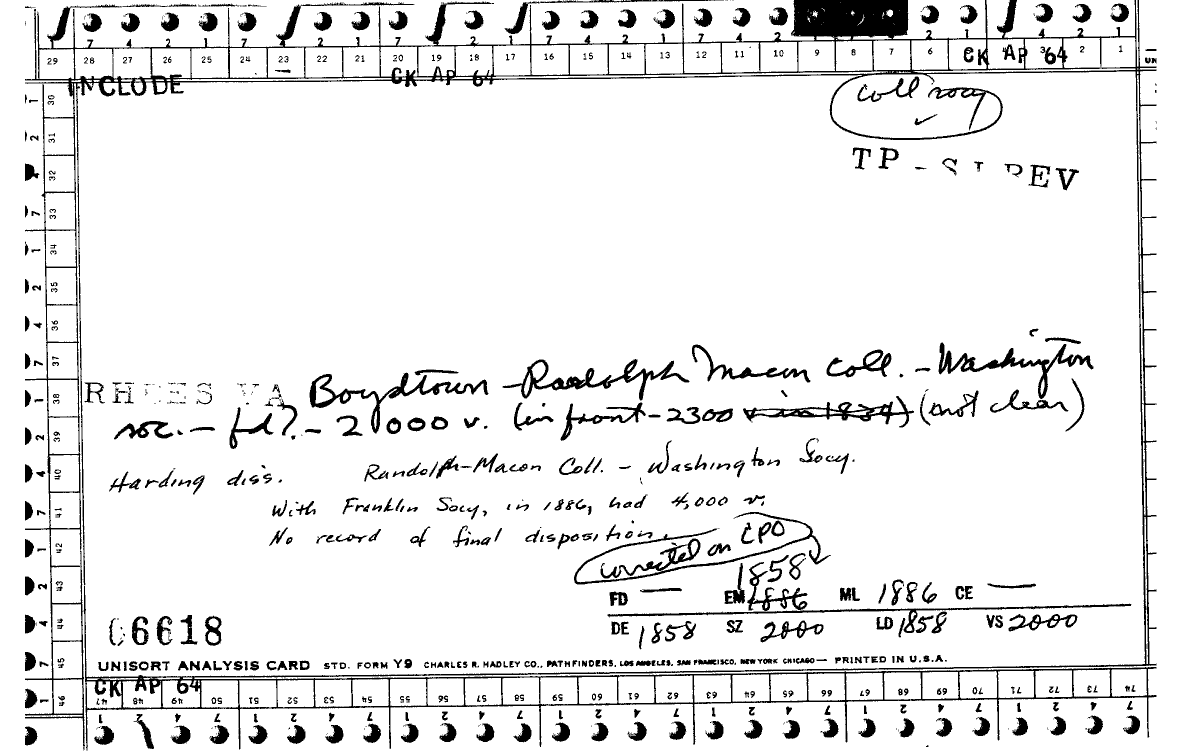 7 4 2 1 7 2 1 7 2 1 7 4 2 1 7 4 2 2 1 4 2 1
29 28 27 26 25 24 23 22 21 20 19 18 17 16 15 14 13 12 11 10 9 8 7 6 3 2 1
CK AP 64
INCLUDE
CK AP 64
Coll socy
✓
TP - SJ REV
30
31
32
33
34
35
36
37
38
39
40
41
42
43
44
45
46
RHEES VA Boydtown - Randolph Macon Coll. - Washington
soc. - fd? - 2000 v. (in front - 2300 v in 1834) (not clear)
Harding diss. Randolph-Macon Coll. - Washington Socy.
With Franklin Socy, in 1886, had 4,000 v.
No record of final disposition.
corrected on CPO
1858
FD — EM 1886 ML 1886 CE —
DE 1858 SZ 2000 LD 1858 VS 2000
06618
UNISORT ANALYSIS CARD STD. FORM Y9 CHARLES R. HADLEY CO., PATHFINDERS, LOS ANGELES, SAN FRANCISCO, NEW YORK CHICAGO — PRINTED IN U.S.A.
CK AP 64
47 48 49 50 51 52 53 54 55 56 60 61 62 63 64 66 67 68 69 70 71 72 73 74